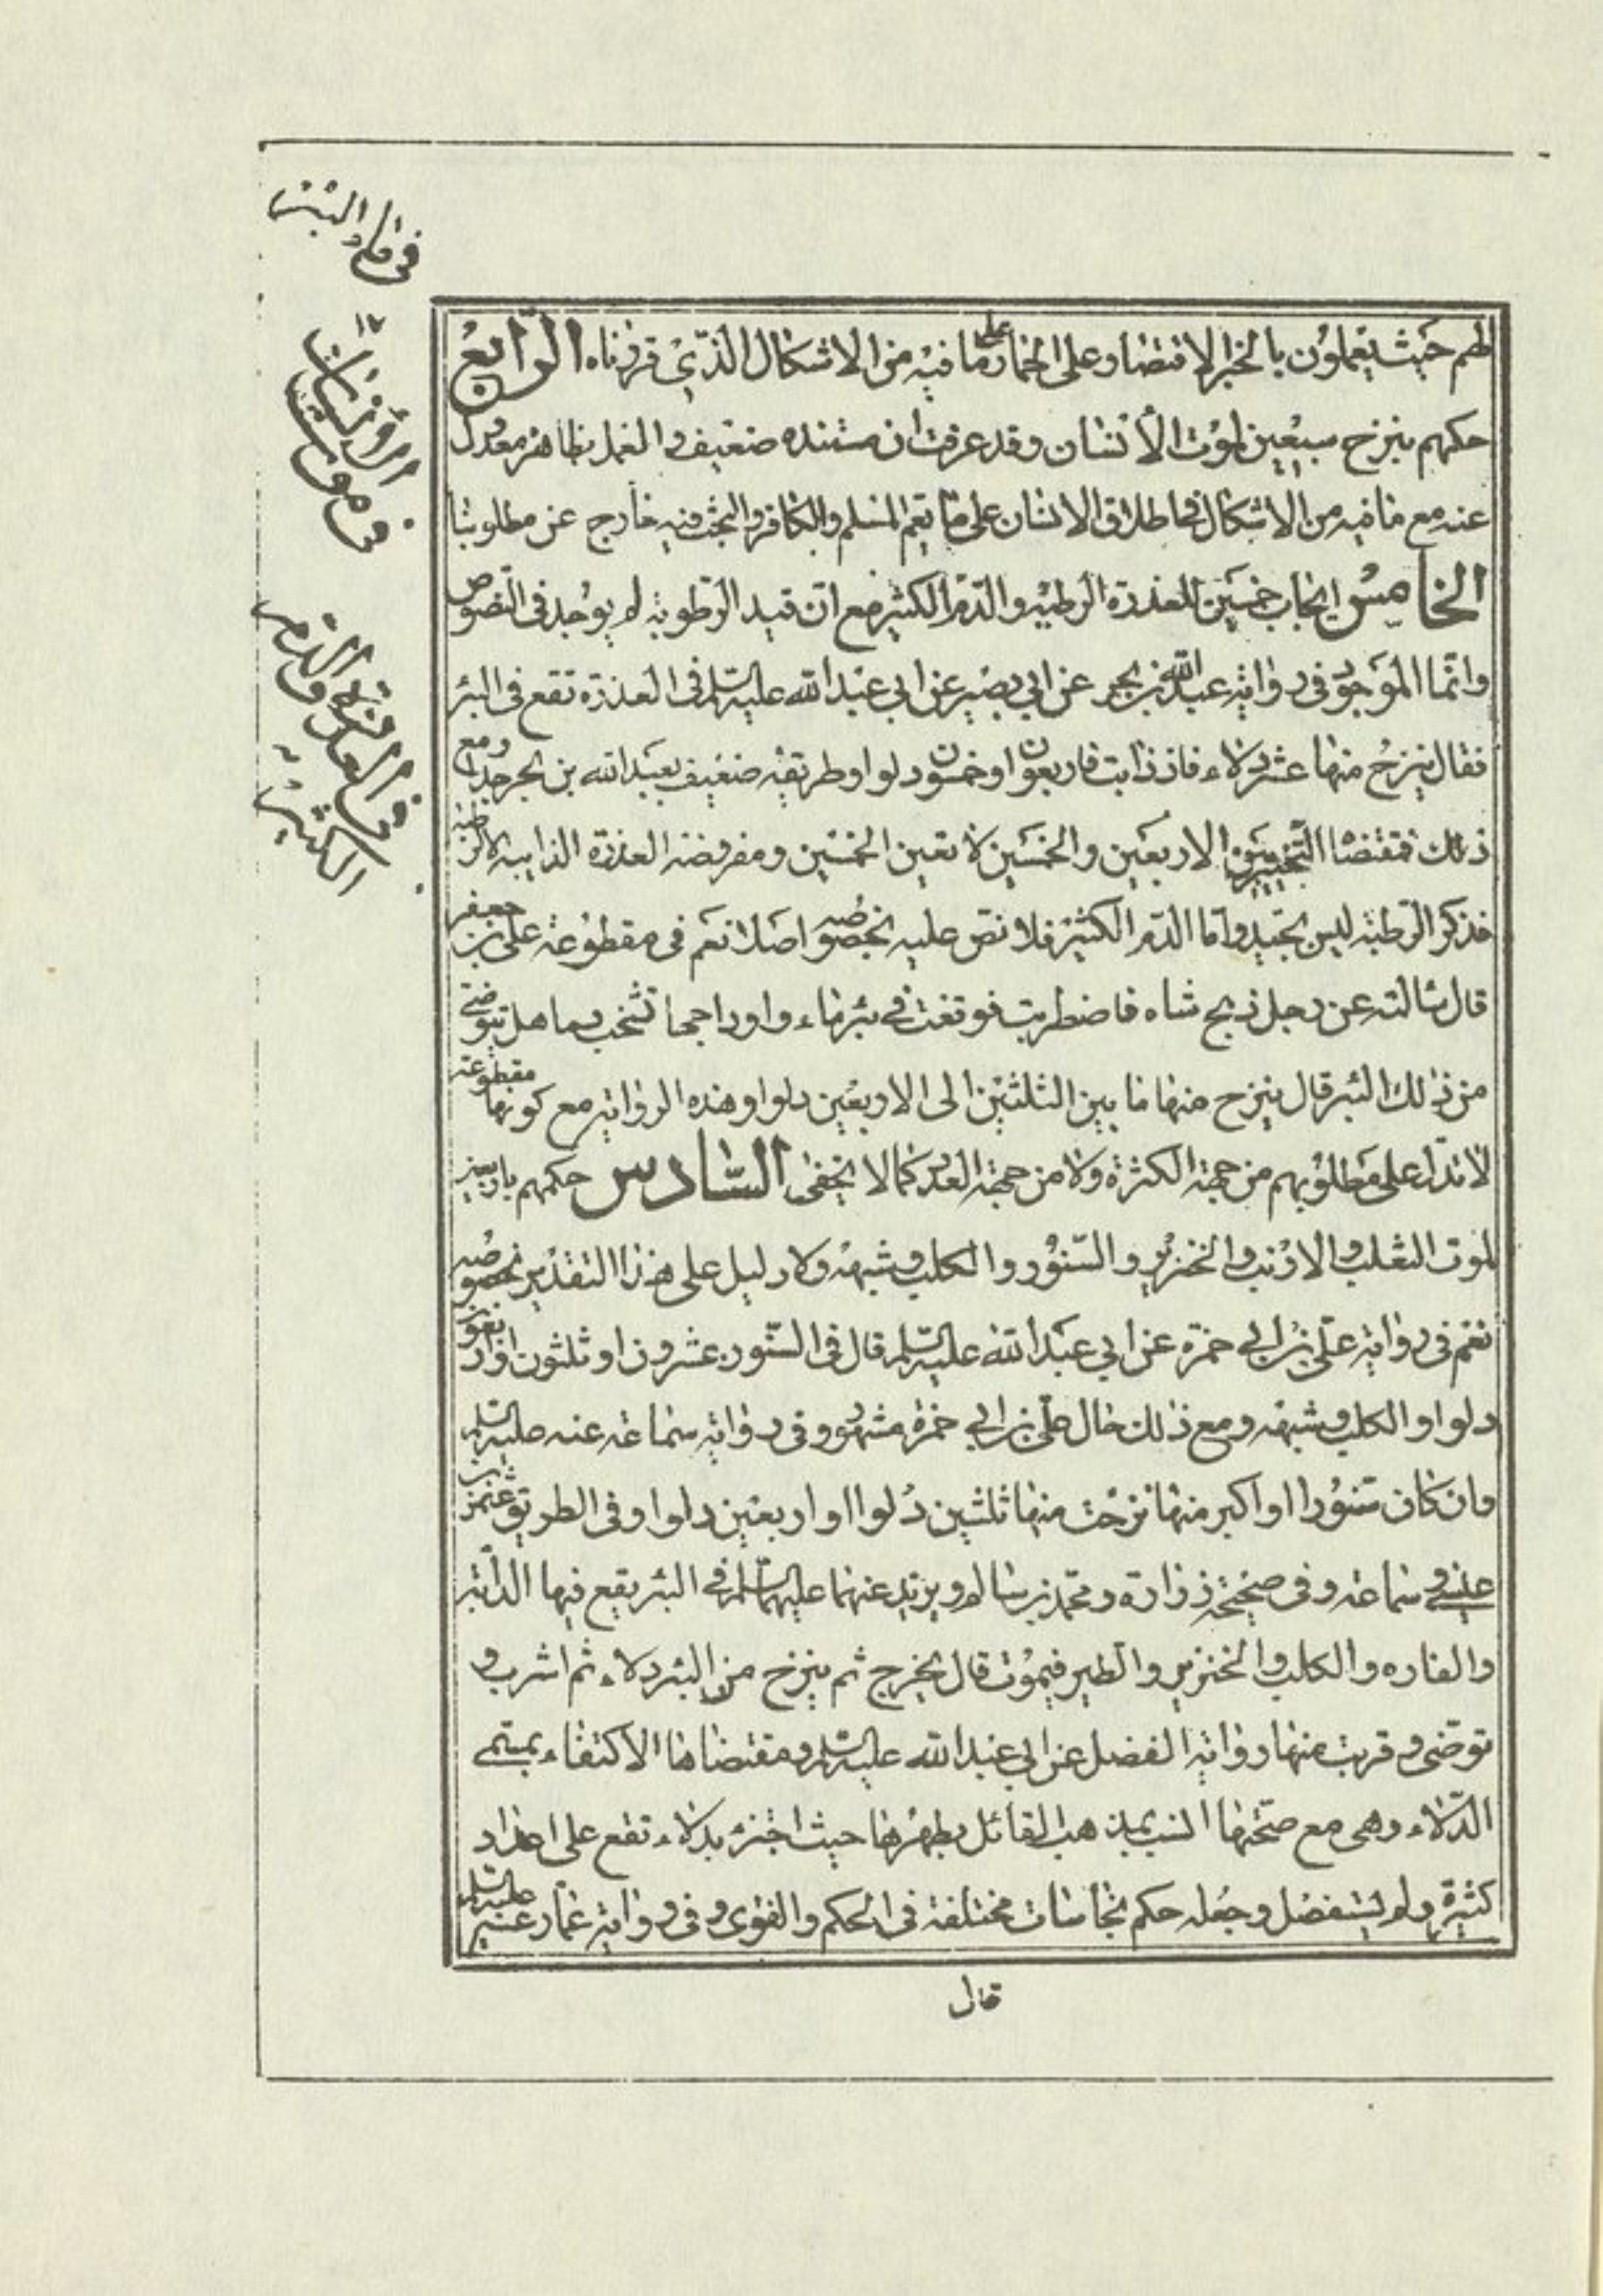 فى ماء البئر
لهم حيث يعملون بالخبر الاقتضار على الحمار على ما فيه من الاشكال الذى قررناه الرابع
حكمهم بنزح سبعين لموت الانسان وقد عرفت ان مستنده ضعيف والعمل بظاهره معدول
عنه مع ما فيه من الاشكال فى اطلاق الانسان على ما يعم المسلم والكافر والبحث فيه خارج عن مطلوبنا
الخامس ايجاب خمسين للعذرة الرطبة والدم الكثير مع ان قيد الرطوبة لم يوجد فى النصوص
وانما الموجود فى رواية عبد الله بن بحر عن ابي بصير عن ابي عبد الله عليه السلم فى العذرة تقع فى البئر
فقال ينزح منها عشر دلاء فان ذابت فاربعون او خمسون دلوا وطريقه ضعيف بعبد الله بن بحر جدا ومع
ذلك فمقتضا التخيير بين الاربعين والخمسين لا تعين الخمسين ومفروضه العذرة الذايبه لا الرطبه
فذكر الرطبة ليس بجيد واما الدم الكثير فلا نص عليه بخصوصه اصلا نعم فى مقطوعة على بن جعفر
قال سالته عن رجل ذبح شاه فاضطربت فوقعت فى بئر ماء واوداجها تشخب دما هل يتوضى
من ذلك البئر قال ينزح منها ما بين الثلثين الى الاربعين دلوا وهذه الرواية مع كونها مقطوعة
لا تدل على مطلوبهم من جهة الكثرة ولا من جهة العدد كما لا يخفى السادس حكمهم باربعين
لموت الثعلب والارنب والخنزير والسنور والكلب وشبهه ولا دليل على هذا التقدير بخصوصه
نعم فى رواية على بن ابي حمزة عن ابي عبد الله عليه السلم قال فى السنور عشرون او ثلثون او اربعون
دلوا والكلب وشبهه ومع ذلك حال على بن ابي حمزة مشهور وفى رواية سماعه عنه عليه السلم
وان كان سنورا او اكبر منها نزحت منها ثلثين دلوا او اربعين دلوا وفى الطريق عثمن بن
عيسى وسماعه وفى صحيحة زرارة ومحمد بن سالم وبريد عنهما عليهما السلم فى البئر يقع فيها الدابة
والفاره والكلب والخنزير والطير فيموت قال يخرج ثم ينزح من البئر دلاء ثم اشرب و
توضى وقربت منها رواية الفضل عن ابي عبد الله عليه السلم ومقتضاها الاكتفاء بمسمى
الدلاء وهى مع صحتها انسب بمذهب القائل بطهرها حيث اجتزء بدلاء تقع على اعداد
كثيرة ولم يستفصل وجعله حكم نجاسات مختلفة فى الحكم والفتوى وفى رواية عمار عنه عليه السلم
قال